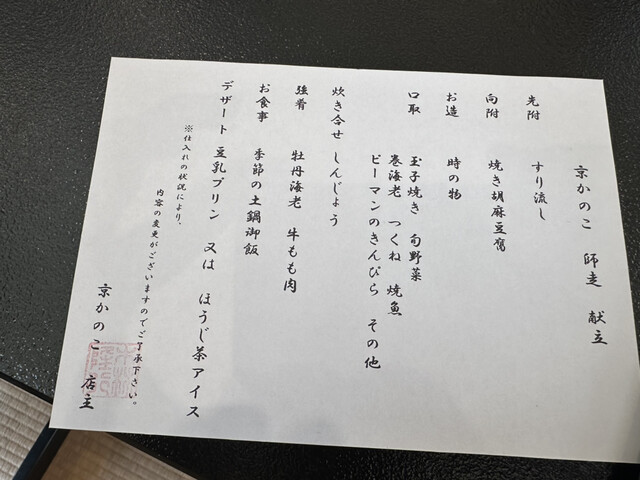 京かのこ 師走 献立
先附 すり流し
向附 焼き胡麻豆腐
お造 時の物
口取 玉子焼き 旬野菜
巻海老 つくね 焼魚
ピーマンのきんぴら その他
炊き合せ しんじょう
強肴 牡丹海老 牛もも肉
お食事 季節の土鍋御飯
デザート 豆乳プリン 又は ほうじ茶アイス
※仕入れの状況により、
内容の変更がございますのでご了承下さい。
京かのこ 店主